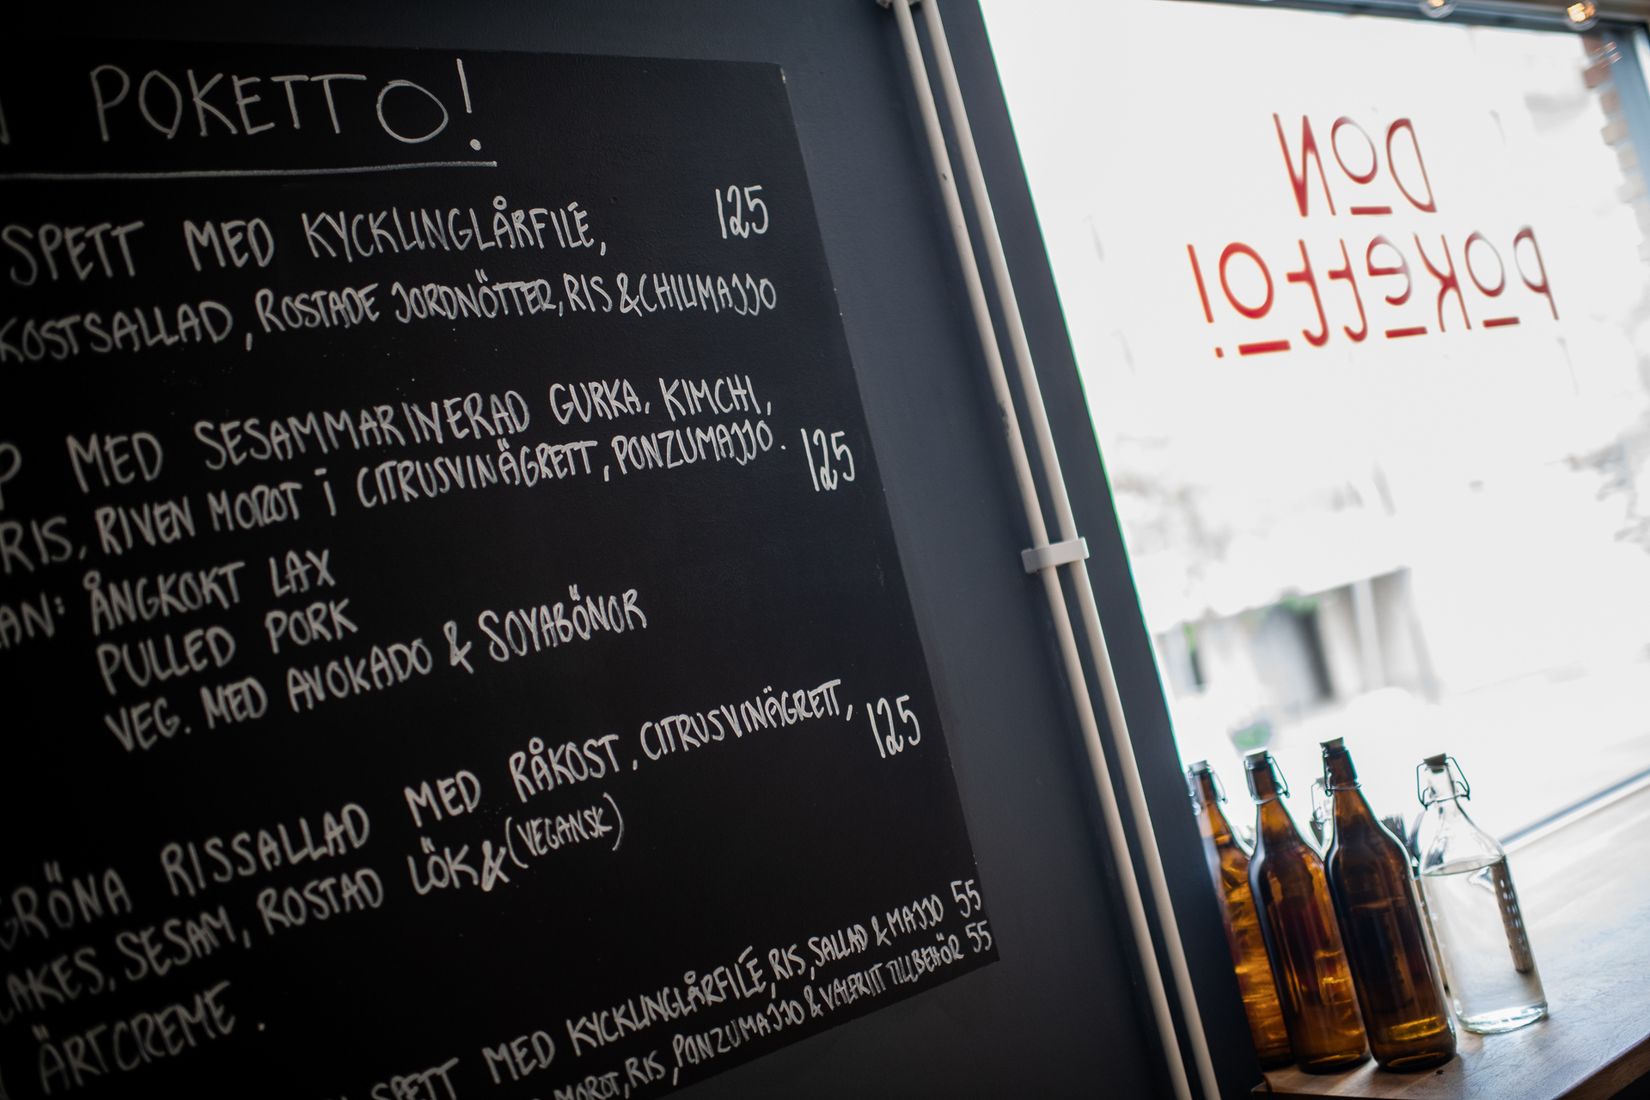 POKETTO!
SPETT MED KYCKLINGLÅRFILÉ, 125
KOSTSALLAD, ROSTADE JORDNÖTTER, RIS & CHILIMAJJO
MED SESAMMARINERAD GURKA, KIMCHI,
RIS, RIVEN MOROT I CITRUSVINÄGRETT, PONZUMAJJO. 125
AN: ÅNGKOKT LAX
PULLED PORK
VEG. MED AVOKADO & SOYABÖNOR
GRÖNA RISSALLAD MED RÅKOST, CITRUSVINÄGRETT, 125
AKES, SESAM, ROSTAD LÖK & (VEGANSK)
ÄRTCREME.
SPETT MED KYCKLINGLÅRFILÉ, RIS, SALLAD & MAJJO 55
MOROT, RIS, PONZUMAJJO & VALFRITT TILLBEHÖR 55
DON
POKETTO!